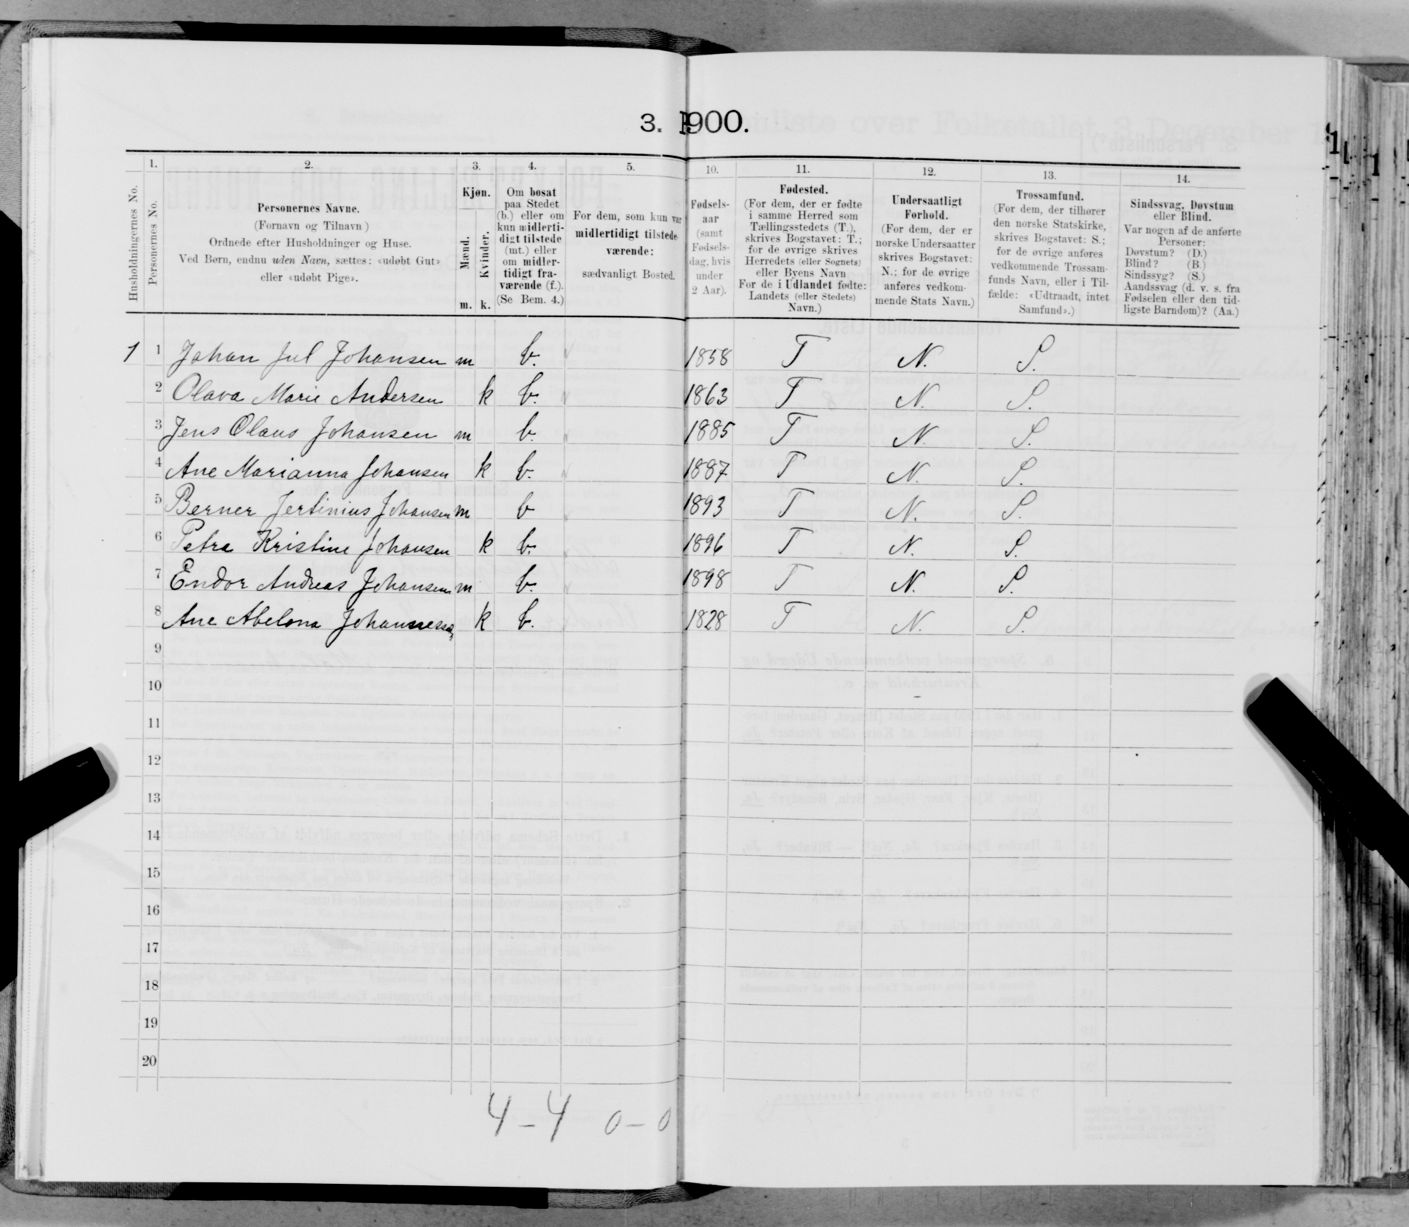 3. 1900.
Husholdningernes No.
1.
Personernes No.
2.
Personernes Navne.
(Fornavn og Tilnavn)
Ordnede efter Husholdninger og Huse.
Ved Børn, endnu uden Navn, sættes: «udøbt Gut»
eller «udøbt Pige».
3.
Kjøn.
Mænd.
Kvinder.
m. k.
4.
Om bosat
paa Stedet
(b.) eller om
kun midlerti-
digt tilstede
(mt.) eller
om midler-
tidigt fra-
værende (f.).
(Se Bem. 4.)
5.
For dem, som kun var
midlertidigt tilstede
værende:
sædvanligt Bosted.
10.
Fødsels-
aar
(samt
Fødsels-
dag, hvis
under
2 Aar).
11.
Fødested.
(For dem, der er fødte
i samme Herred som
Tællingsstedets (T.),
skrives Bogstavet: T.;
for de øvrige skrives
Herredets (eller Sognets)
eller Byens Navn
For de i Udlandet fødte:
Landets (eller Stedets)
Navn.)
12.
Undersaatligt
Forhold.
(For dem, der er
norske Undersaatter
skrives Bogstavet:
N.; for de øvrige
anføres vedkom-
mende Stats Navn.)
13.
Trossamfund.
(For dem, der tilhører
den norske Statskirke,
skrives Bogstavet: S.;
for de øvrige anføres
vedkommende Trossam-
funds Navn, eller i Til-
fælde: «Udtraadt, intet
Samfund».)
14.
Sindssvag, Døvstum
eller Blind.
Var nogen af de anførte
Personer:
Døvstum? (D.)
Blind? (B.)
Sindssyg? (S.)
Aandssvag (d. v. s. fra
Fødselen eller den tid-
ligste Barndom)? (Aa.)
1 1 Johan Jul Johansen m b. 1858 T N. S.
2 Olava Marie Andersen k b. 1863 T N. S.
3 Jens Olaus Johansen m b. 1885 T N. S.
4 Ane Marianna Johansen k b. 1887 T N. S.
5 Berner Jertinius Johansen m b 1893 T N. S.
6 Petra Kristine Johansen k b. 1896 T N. S.
7 Endor Andreas Johansen m b. 1898 T N. S.
8 Ane Abelona Johannesen k b. 1828 T N. S.
9
10
11
12
13
14
15
16
17
18
19
20
4 - 4 0 - 0